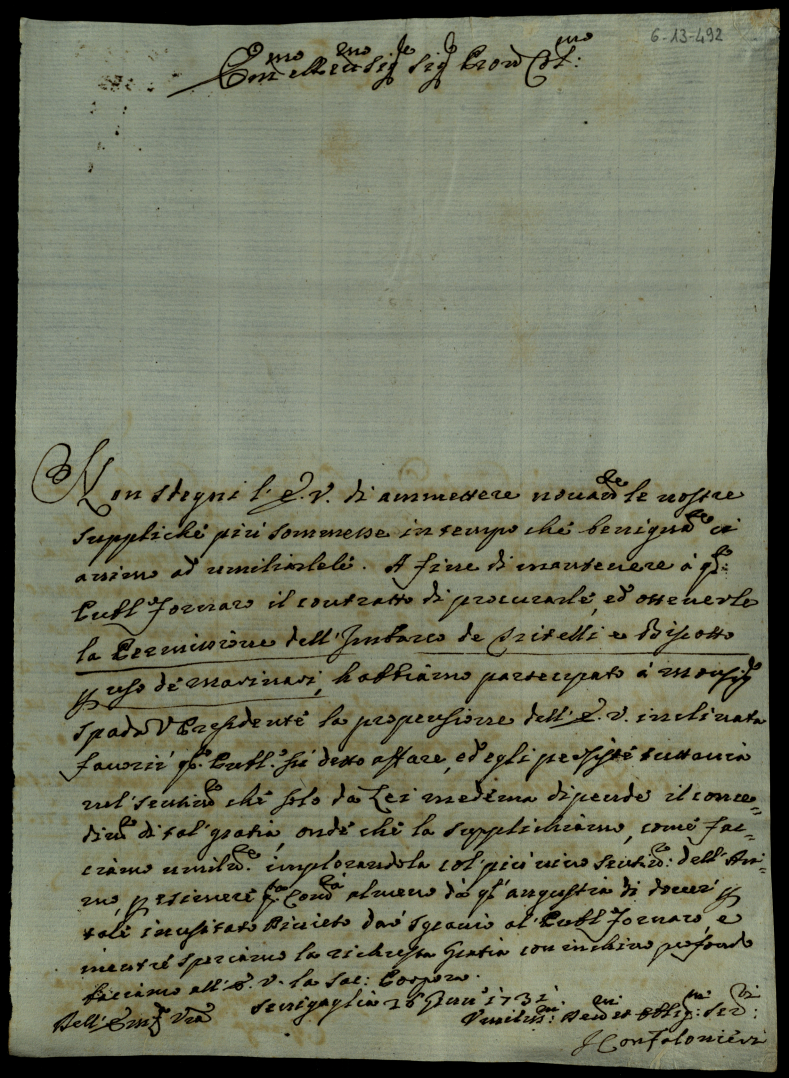 6-13-492
Em.mo e Rev.mo Sig.re Sig.re Pron Col.mo:
Non sdegni l'E.V. di ammettere nouam.te le nostre
suppliche più sommesse in tempo che benignam.te ci
animo ad umiliarlele. A fine di mantenere à q.to
Publ.o Fornaro il contratto di procurarle, ed ottenerle
la Permissione dell'Imbarco de Pristelli e Biscotto
p uso de Marinari, habbiamo partecipato à Monsig.re
Spada V Presidente la propensione dell'E.V. inclinata
fauorir q.o Publ.o sù detto affare, ed egli persiste tuttauia
nel sentim.to che solo da Lei medema dipende il conce=
dim.to di tal gratia, onde che la supplichiamo, come fac=
ciamo umilm.te implorandola col più uiuo sentim.to: dell'Ani=
mo, p esimere q.ta Com.tà almeno da q.l'angustia di douer p
tale inusitato Diuieto dar sgrauio al Publ.o Fornaro, e
mentre speriamo la richiesta Gratia con inchino profondo
bacciamo all'E.V. la Sac: Porpora.
Dell'Em.za V.ra Senigaglia 28 Gen.o 1731. Vmiliss.mi: Deu.mi et Obblig.mi: Ser.ri:
Il Confaloniere